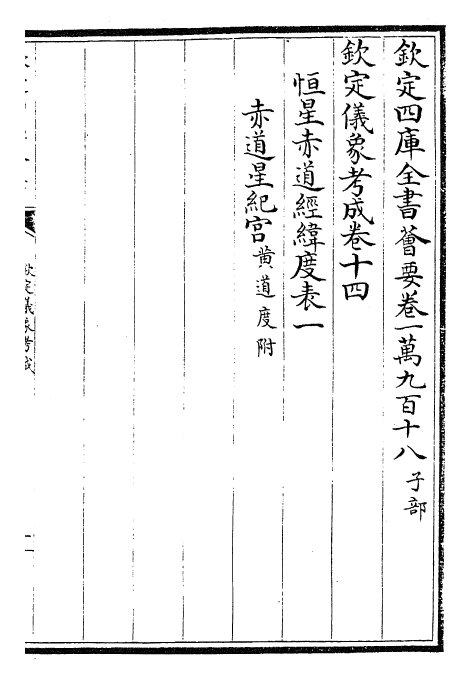 欽定四庫全書薈要卷一萬九百十八 子部
欽定儀象考成卷十四
恒星赤道經緯度表一
赤道星紀宮黄道度附
欽定儀象考成